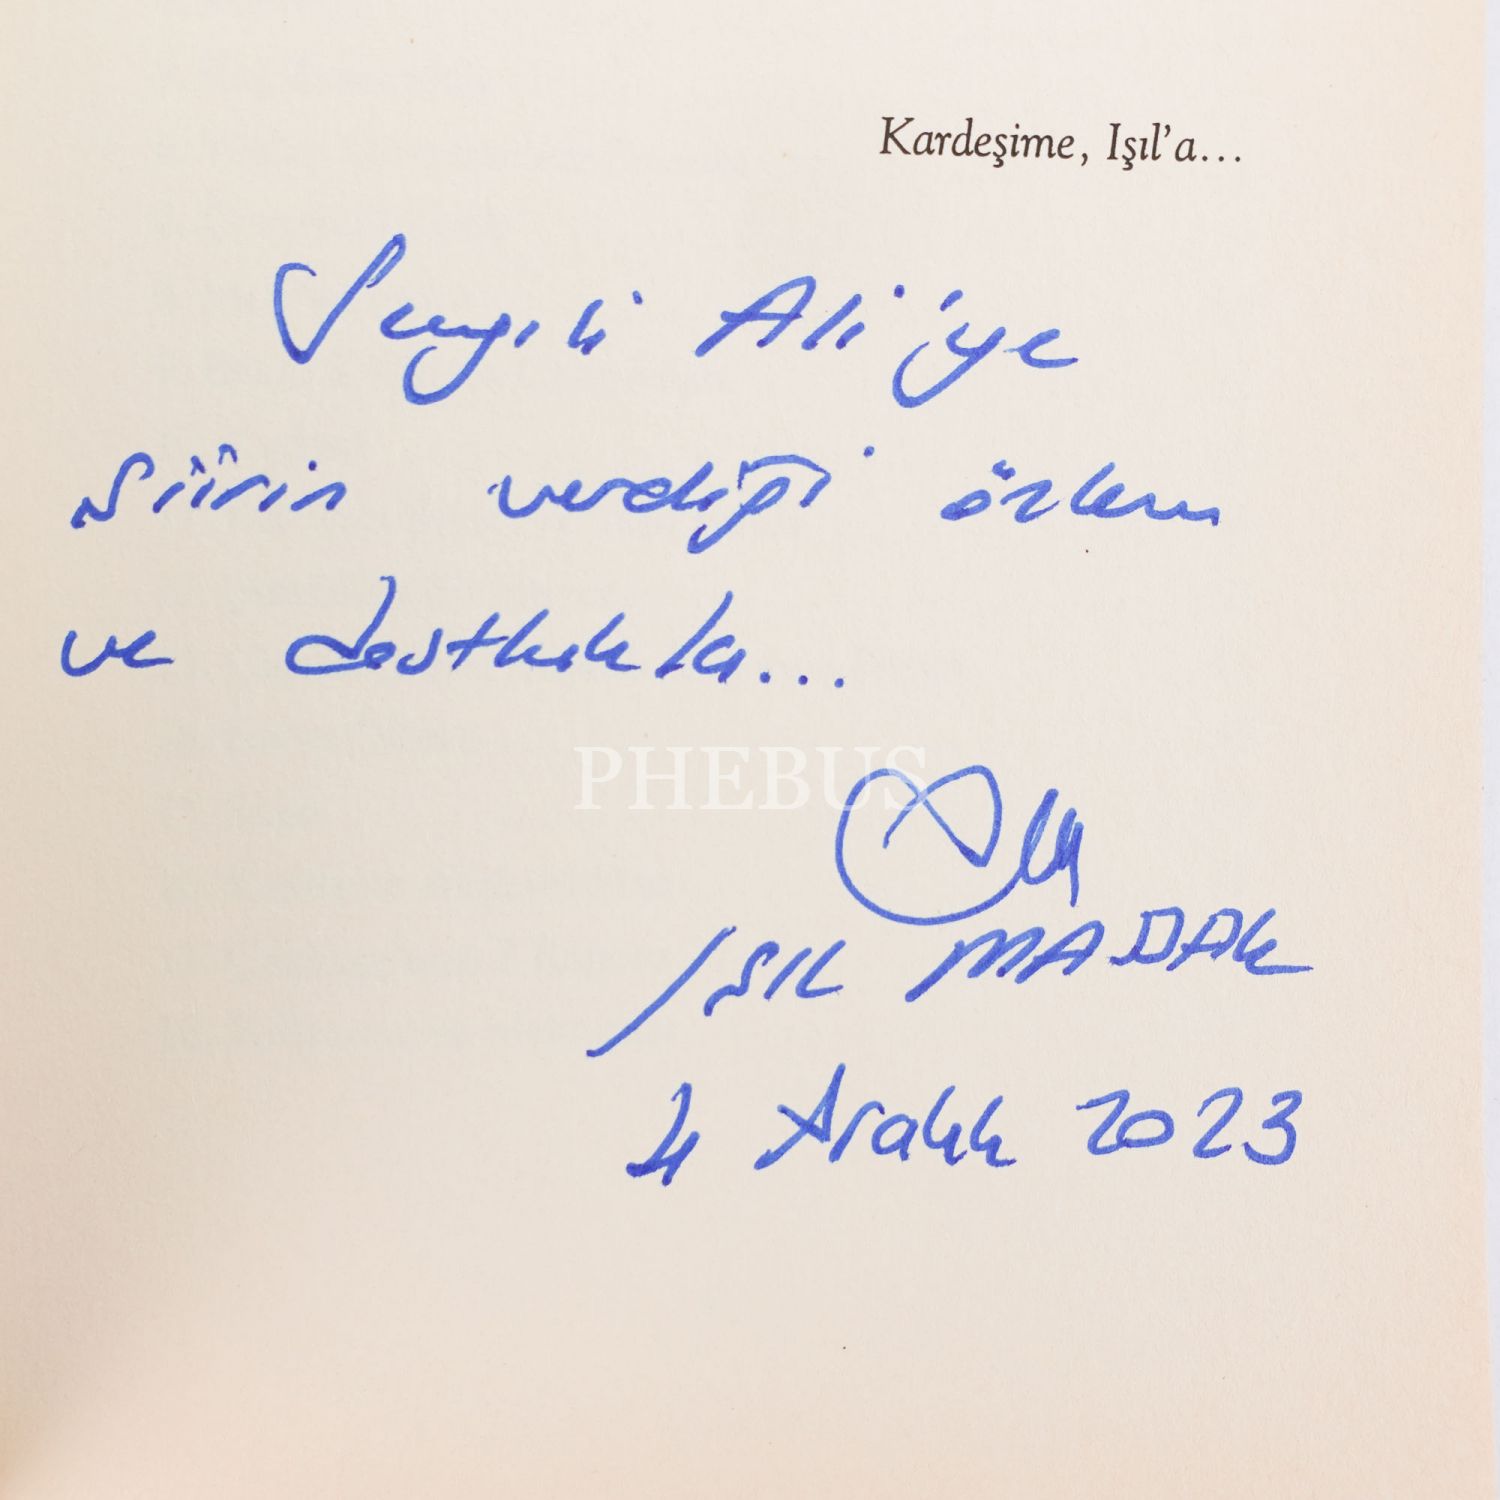 Kardeşime, Işıl'a...
Sevgili Ali'ye
Şiirin verdiği özlem
ve dostlukla...
PHEBUS
IŞIL MADAK
4 Aralık 2023